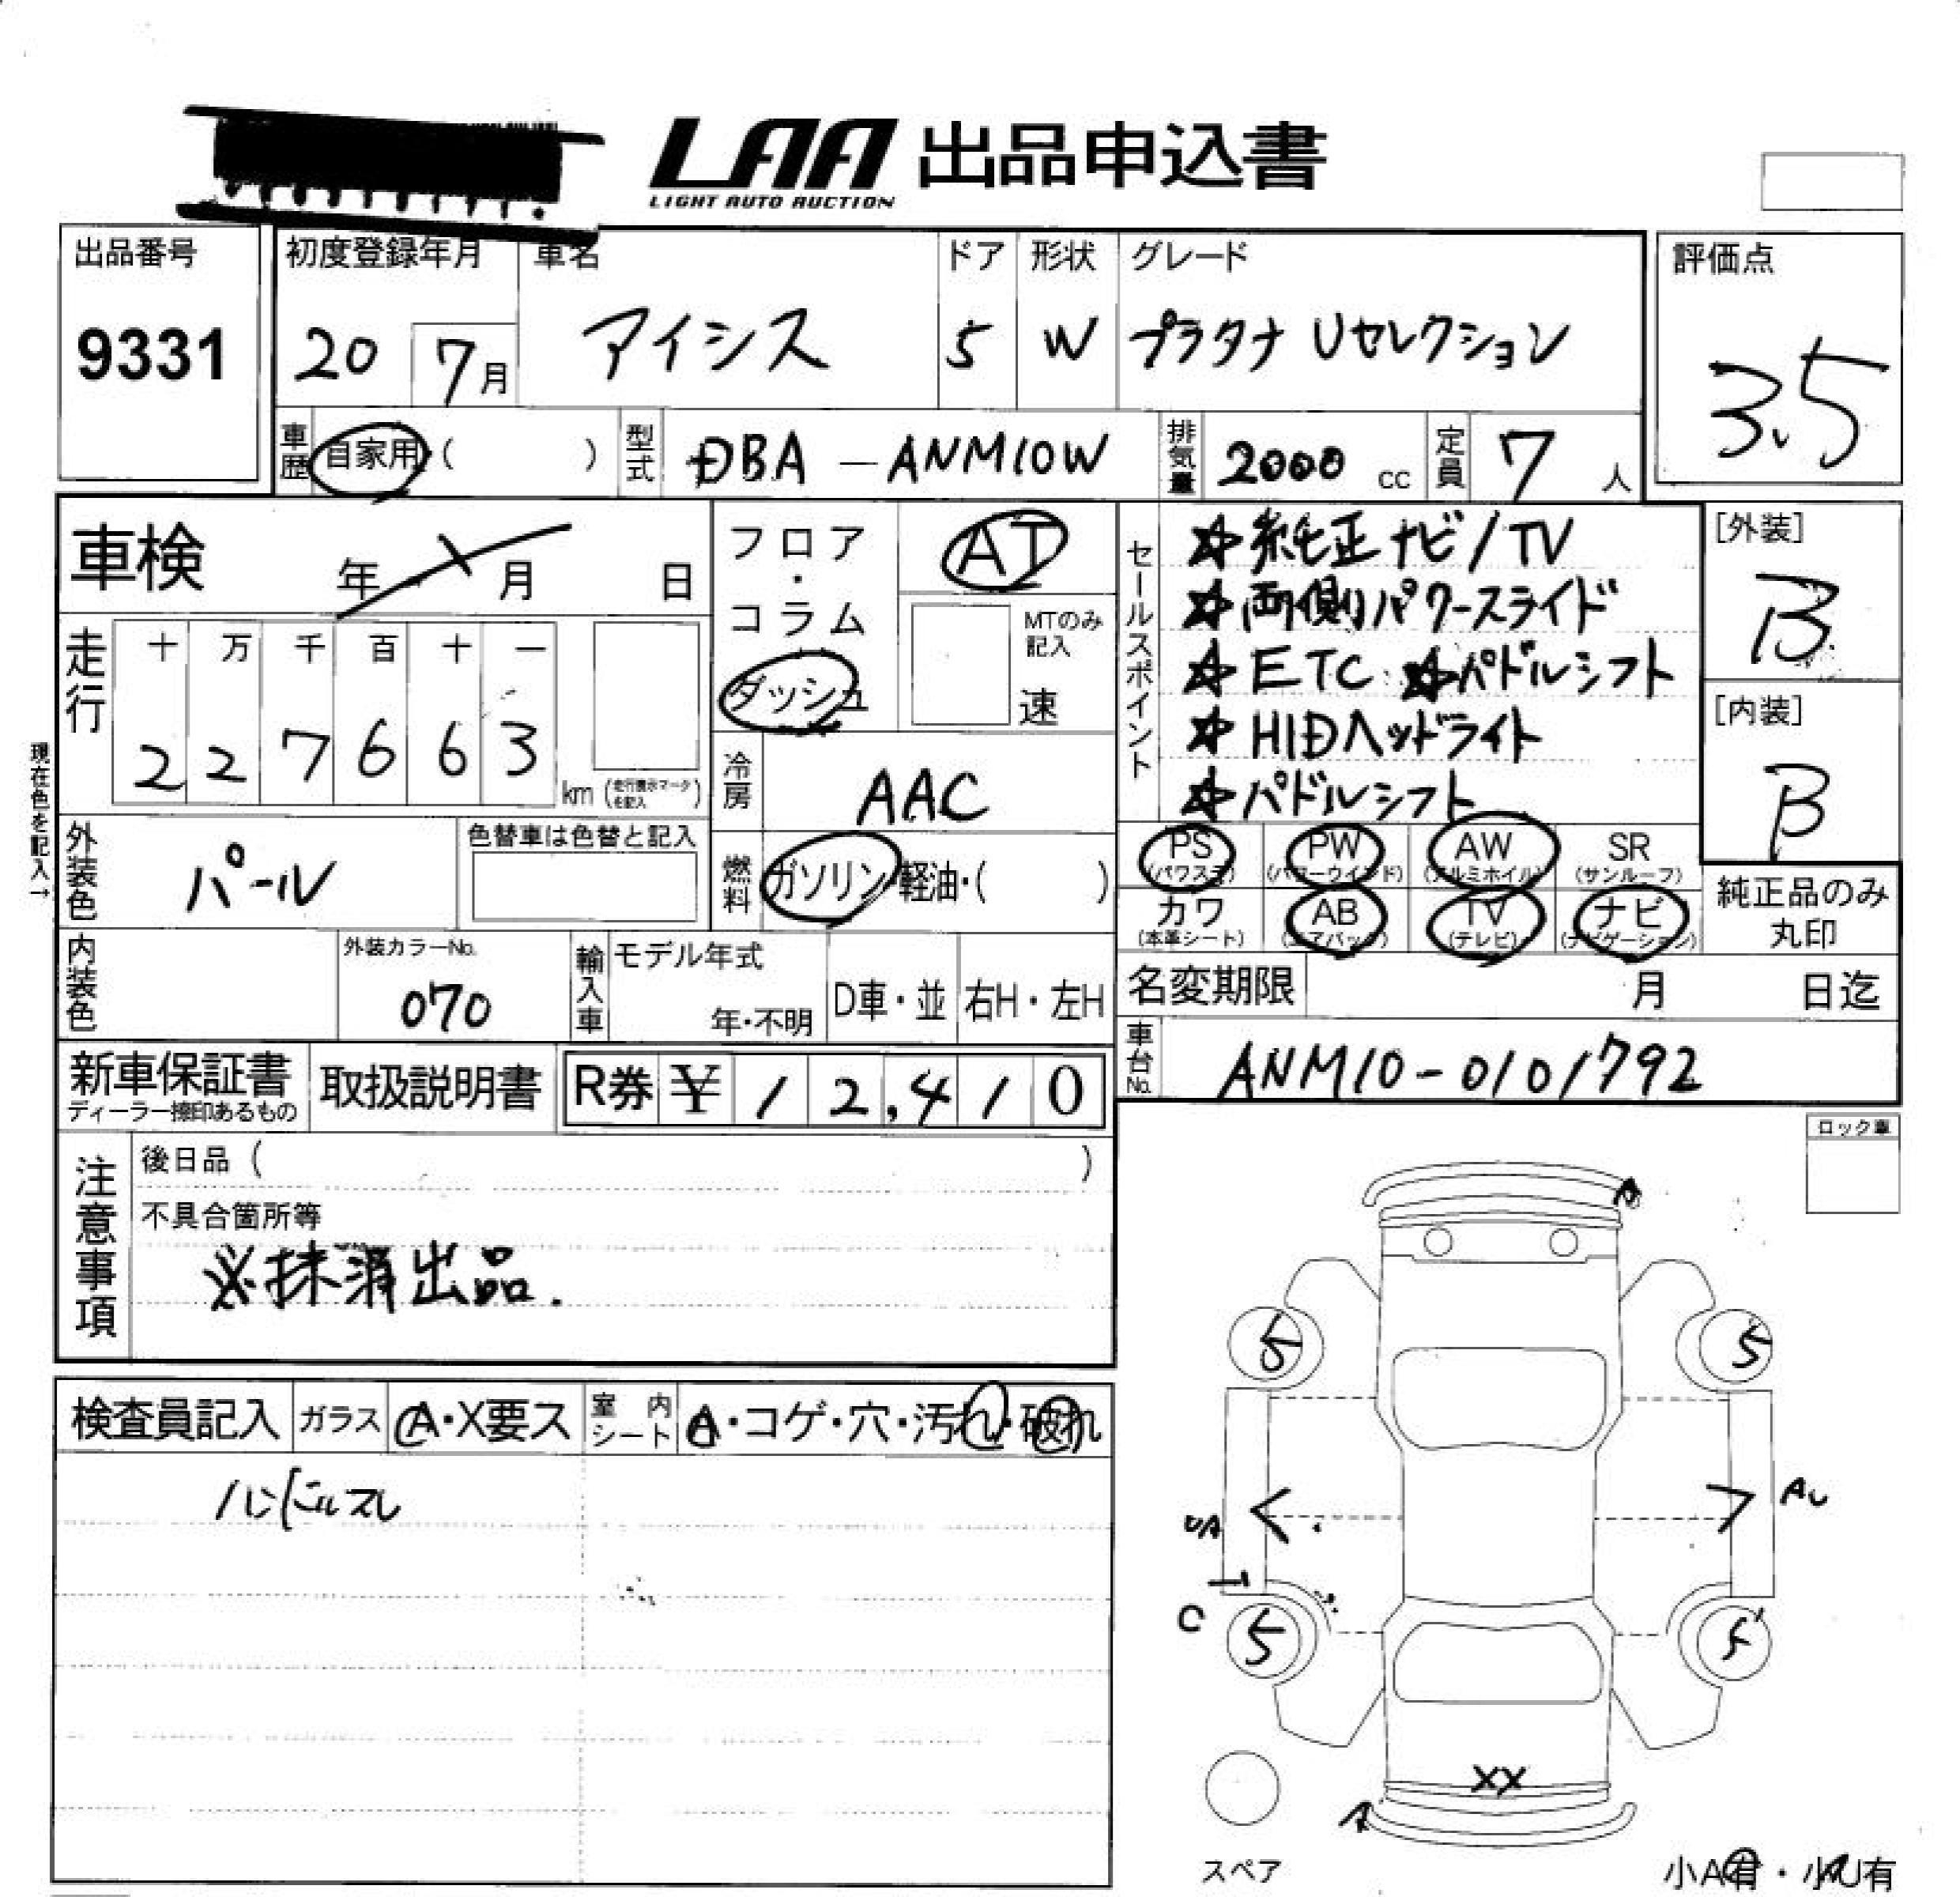 LAA 出品申込書
LIGHT AUTO AUCTION
出品番号 初度登録年月 車名 ドア 形状 グレード 評価点
9331 20 7月 アイシス 5 W プラタナ Uセレクション 3.5
車歴 自家用・( ) 型式 DBA-ANM10W 排気量 2000 cc 定員 7人
車検 年 月 日
フロア・コラム ダッシュ AT
MTのみ記入 速
走行 十 万 千 百 十 一
2 2 7 6 6 3 km (走行表示マークを記入)
現在色を記入→
冷房 AAC
外装色 パール 色替車は色替と記入
燃料 ガソリン・軽油・( )
内装色 外装カラーNo. 070 輸入車 モデル年式 年・不明 D車・並 右H・左H
セールスポイント
☆純正ナビ/TV
☆両側パワースライド
☆ETC ☆パドルシフト
☆HIDヘッドライト
☆パドルシフト
[外装] B
[内装] B
PS (パワステ) PW (パワーウインド) AW (アルミホイル) SR (サンルーフ)
カワ (本革シート) AB (エアバッグ) TV (テレビ) ナビ (ナビゲーション)
純正品のみ丸印
名変期限 月 日迄
車台No. ANM10-0101792
新車保証書 ディーラー捺印あるもの 取扱説明書 R券 ¥12,410
注意事項
後日品 ( )
不具合箇所等
※抹消出品.
ロック車
検査員記入 ガラス A・X要ス 室内シート A・コゲ・穴・汚れ・破れ
ハンドルスレ
A
5 5
UA AU
C 5 5
XX
A
スペア
小A有・小U有